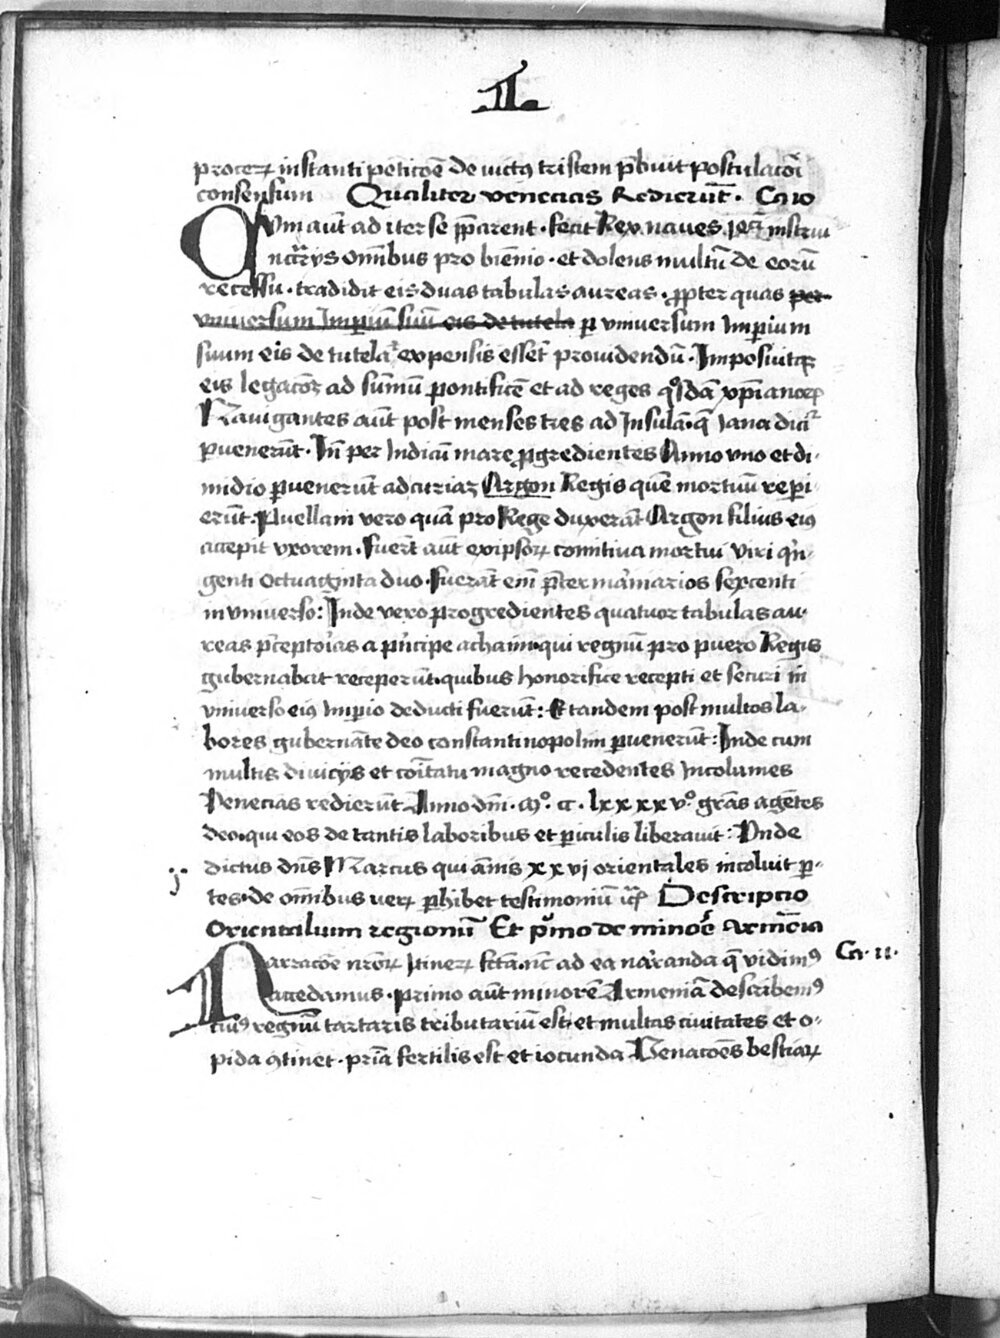 I
proceꝝ instanti peticōe de uictꝯ tristem p̄buit postulacōi
consensum Qualiter venecias Redierūt · Ca 10
Qvm aūt ad iter se p̄parent · fecit Rex naues
nc̄rijs om̄ibus pro bien̄io · et dolens multū de eorū
recessu · tradidit eis duas tabulas aureas · ꝓpter quas per
vniuersum Imperiū suū eis de tutela ꝑ vniuersum Imperium
suum eis de tutela ⁊ expensis esset prouidendū · Imposuitqꝫ
eis legacōꝫ ad sūmū pontificē et ad reges qͦsdā xp̄ianoꝝ
Nauigantes aūt post menses tres ad Insulā · q̄ Iana dicir̄
ꝑuenerūt · In̄ per Indicū mare ꝓgredientes Anno vno et di-
midio ꝑuenerūt ad curiaꝫ Argon Regis quē mortuū repi-
erūt · Puellam vero quā pro Rege duxerāt Argon filius eiꝯ
accepit vxorem · Fuerūt aūt ex ipsoꝝ comitiua mortui viri qͥn-
genti octuaginta duo · Fuerāt em̄ p̄ter marinarios sexcenti
in vniuerso : Inde vero progredientes quatuor tabulas au-
reas p̄ceptorias a pͥncipe achaim · qui regnū pro puero Regis
gubernabat receperūt · quibus honorifice recepti et securi in
vniuerso eiꝯ Imperio deducti fuerūt : Et tandem post multos la-
bores gubernāte deo constantinopolim ꝑuenerūt : Inde cum
multis diuicijs et comitatu magno recedentes Incolumes
Venecias redierūt Anno dnī · Mͦ · CC · lxxxxvͦ gr̄as agētes
deo · qui eos de tantis laboribus et ꝑiculis liberauit : Vnde
dictus dn̄s Marcus qui annis xxvj orientales incoluit ꝑ-
tes · de om̄ibus ueꝝ ꝑhibet testimoniū Descriptio
Orientalium regionū Et pͥmo de minore armenia
Narracōe nr̄oꝝ Itineꝝ fc̄ta · nc̄ ad ea narranda q̄ vidimꝯ Ca · 11 ·
accedamus · primo aūt minorē Armeniā describemꝯ
cuiꝯ regnū tartaris tributariū est · et multas ciuitates et o-
pida ꝯtinet · pr̄ia fertilis est et iocunda Venacōes bestiaꝝ